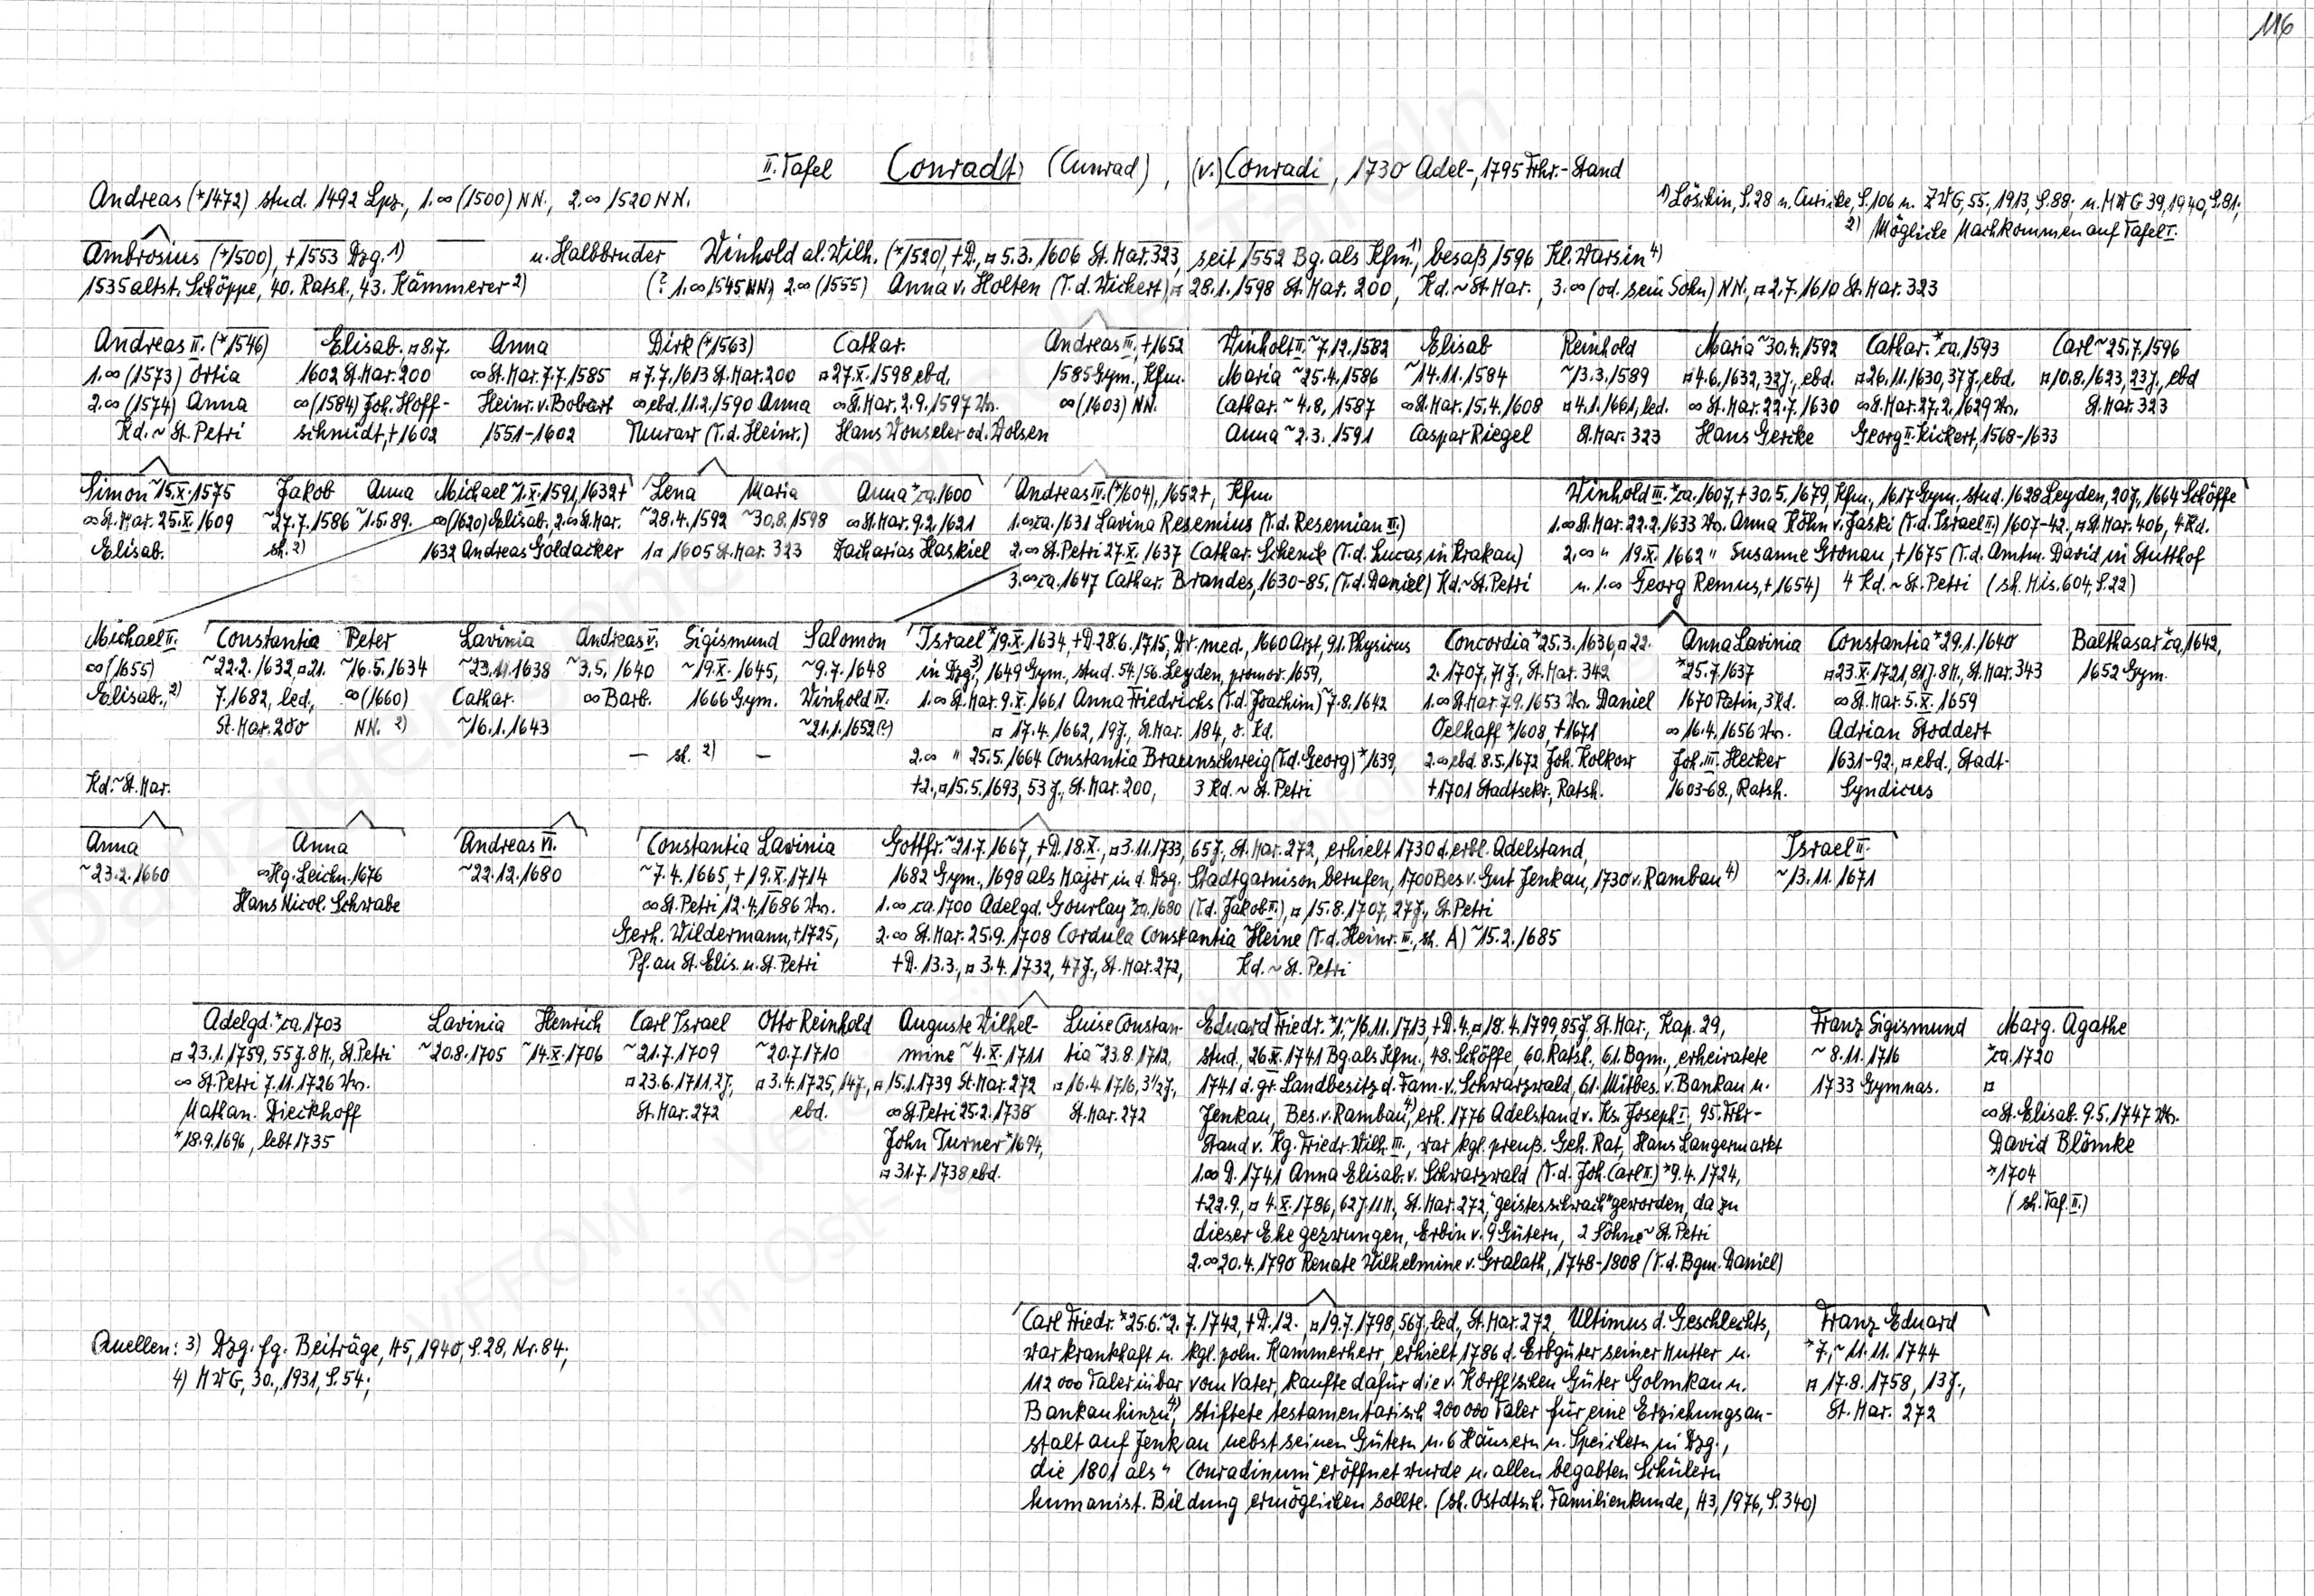 116
II. Tafel Conradt (Cunrad), (v.) Conradi, 1730 Adel-, 1795 Frhr.-Stand
Andreas (*1472) stud. 1492 Lpz., 1.∞ (1500) NN., 2.∞ 1520 NN.
1) Löschin, S.28 u. Curicke, S.106 u. ZWG, 55, 1913, S.88; u. MWG 39, 1940, S.81;
2) Mögliche Nachkommen auf Tafel I.
Ambrosius (*1500), +1553 Dzg. 1) u. Halbbruder Winhold al. Wilh. (*1520), +D., ¤ 5.3.1606 St. Mar. 323, seit 1552 Bg. als Kfm. 1), besaß 1596 Kl. Warsin 4)
1535 altst. Schöppe, 40. Ratsh., 43. Kämmerer 2) (? 1.∞ 1545 NN.) 2.∞ (1555) Anna v. Holten (T.d. Wichert) ¤ 28.1.1598 St. Mar. 200, Kd. ~ St. Mar., 3.∞ (od. sein Sohn) NN., ¤ 2.7.1610 St. Mar. 323
Andreas II. (*1546)
1.∞ (1573) Ortia
2.∞ (1574) Anna
Kd. ~ St. Petri
Elisab. ¤ 8.7.
1602 St. Mar. 200
∞ (1584) Joh. Hoff-
schmidt, +1602
Anna
∞ St. Mar. 7.7.1585
Heinr. v. Bobart
1551-1602
Dirk (*1563)
¤ 7.7.1613 St. Mar. 200
∞ ebd. 11.2.1590 Anna
Thuraw (T.d. Heinr.)
Cathar.
¤ 27.X.1598 ebd.
∞ St. Mar. 2.9.1597 Wr.
Hans Wonseler od. Wolsen
Andreas III. +1652
1585 Gym., Kfm.
∞ (1603) NN.
Winholt II. ~ 7.12.1582
Maria ~ 25.4.1586
Cathar. ~ 4.8.1587
Anna ~ 2.3.1591
Elisab
~ 14.11.1584
∞ St. Mar. 15.4.1608
Caspar Riegel
Reinhold
~ 13.3.1589
¤ 4.1.1661, led.
St. Mar. 323
Maria ~ 30.4.1592
¤ 4.6.1632, 32J., ebd.
∞ St. Mar. 22.7.1630
Hans Gericke
Cathar. *ca. 1593
¤ 26.11.1630, 37J., ebd.
∞ St. Mar. 27.2.1629 Wr.
Georg II. Kickert, 1568-1633
Carl ~ 25.7.1596
¤ 10.8.1623, 23J., ebd
St. Mar. 323
Simon ~ 15.X.1575
∞ St. Mar. 25.X.1609
Elisab.
Jakob
~ 27.7.1586
sh. 2)
Anna
~ 1.5.89.
Michael ~ 1.X.1591, 1632+
∞ (1620) Elisab., 2.∞ St. Mar.
1632 Andreas Goldacker
Lena
~ 28.4.1592
1 ¤ 1605 St. Mar. 323
Maria
~ 30.8.1598
Anna *ca. 1600
∞ St. Mar. 9.2.1621
Zacharias Haskiel
Andreas IV. (*1604), 1652+, Kfm
1.∞ ca. 1631 Lavina Resemius (T.d. Resemian III.)
2.∞ St. Petri 27.X.1637 Cathar. Schenck (T.d. Lucas in Krakau)
3.∞ ca. 1647 Cathar. Brandes, 1630-85, (T.d. Daniel) Kd. ~ St. Petri
Winhold III. *ca. 1607, + 30.5.1679, Kfm., 1617 Gym., stud. 1628 Leyden, 20J., 1664 Schöffe
1.∞ St. Mar. 22.2.1633 Wr. Anna Köhn v. Jaski (T.d. Israel II.) 1607-42, ¤ St. Mar. 406, 4 Kd.
2.∞ " 19.X.1662 " Susanne Gronau, +1675 (T.d. Amtm. David in Stutthof
u. 1.∞ Georg Remus, +1654) 4 Kd. ~ St. Petri (sh. Mis. 604, S.22)
Michael II.
∞ (1655)
Elisab., 2)
Kd. ~ St. Mar.
Constantia
~ 22.2.1632, ¤ 21.
7.1682, led.,
St. Mar. 200
Peter
~ 16.5.1634
∞ (1660)
NN. 2)
Lavinia
~ 23.11.1638
Cathar.
~ 16.1.1643
Andreas V.
~ 3.5.1640
∞ Barb.
Sigismund
~ 19.X.1645,
1666 Gym.
— sh. 2) —
Salomon
~ 9.7.1648
Winhold IV.
~ 21.1.1652 (?)
Israel *19.X.1634, +D. 28.6.1715, Dr. med., 1660 Arzt, 91. Physicus
in Dzg. 3), 1649 Gym., stud. 54/56 Leyden, promov. 1659,
1.∞ St. Mar. 9.X.1661 Anna Friedrichs (T.d. Joachim) ~ 7.8.1642
¤ 17.4.1662, 19J., St. Mar. 184, o. Kd.
2.∞ " 25.5.1664 Constantia Braunschweig (T.d. Georg) *1639,
+2., ¤ 15.5.1693, 53J., St. Mar. 200, 3 Kd. ~ St. Petri
Concordia *25.3.1636, ¤ 22.
2.1707, 71J., St. Mar. 342
1.∞ St. Mar. 7.9.1653 Wr. Daniel
Oelhaff *1608, +1671
2.∞ ebd. 8.5.1672 Joh. Kolkow
+1701 Stadtsekr., Ratsh.
Anna Lavinia
*25.7.1637
1670 Patin, 3 Kd.
∞ 16.4.1656 Wr.
Joh. III. Hecker
1603-68., Ratsh.
Constantia *29.1.1640
¤ 23.X.1721, 81J. 8M., St. Mar. 343
∞ St. Mar. 5.X.1659
Adrian Stoddert
1631-92., ¤ ebd., Stadt-
Syndicus
Balthasar *ca. 1642,
1652 Gym.
Anna
~ 23.2.1660
Anna
∞ Hg. Leichn. 1676
Hans Nicol. Schwabe
Andreas VI.
~ 22.12.1680
Constantia Lavinia
~ 7.4.1665, + 19.X.1714
∞ St. Petri 12.4.1686 Wr.
Gerh. Wildermann, +1725,
Pf. an St. Elis. u. St. Petri
Gottfr. ~ 21.7.1667, +D. 18.X., ¤ 3.11.1733, 65J., St. Mar. 272, erhielt 1730 d. erbl. Adelstand,
1682 Gym., 1698 als Major in d. Dzg. Stadtgarnison berufen, 1700 Bes. v. Gut Jenkau, 1730 v. Rambau 4)
1.∞ ca. 1700 Adelgd. Gourlay *ca. 1680 (T.d. Jakob II.), ¤ 15.8.1707, 27J., St. Petri
2.∞ St. Mar. 25.9.1708 Cordula Constantia Heine (T.d. Heinr. III., sh. A) ~ 15.2.1685
+D. 13.3., ¤ 3.4.1732, 47J., St. Mar. 272, Kd. ~ St. Petri
Israel II.
~ 13.11.1671
Adelgd. *ca. 1703
¤ 23.1.1759, 55J. 8M., St. Petri
∞ St. Petri 7.11.1726 Wr.
Nathan. Dieckhoff
*18.9.1696, lebt 1735
Lavinia
~ 20.8.1705
Henrich
~ 14.X.1706
Carl Israel
~ 21.7.1709
¤ 23.6.1711, 2J,
St. Mar. 272
Otto Reinhold
~ 20.7.1710
¤ 3.4.1725, 14J.,
ebd.
Auguste Wilhel-
mine ~ 4.X.1711
¤ 15.1.1739 St. Mar. 272
∞ St. Petri 25.2.1738
John Turner *1694,
¤ 31.7.1738 ebd.
Luise Constan-
tia ~ 23.8.1712,
¤ 16.4.1716, 3½J.,
St. Mar. 272
Eduard Friedr. *1. ~ 16.11.1713 +D. 4. ¤ 18.4.1799 85J. St. Mar., Kap. 29,
stud., 26.X.1741 Bg. als Kfm., 48. Schöffe, 60. Ratsh., 61. Bgm., erheiratete
1741 d. gr. Landbesitz d. Fam. v. Schwarzwald, 61. Mitbes. v. Bankau u.
Jenkau, Bes. v. Rambau 4), erh. 1776 Adelstand v. Ks. Joseph I., 95. Frhr-
Stand v. Kg. Friedr. Wilh. III., war kgl. preuß. Geh. Rat, Haus Langermarkt
1.∞ D. 1741 Anna Elisab. v. Schwarzwald (T.d. Joh. Carl II.) *9.4.1724,
+22.9., ¤ 4.X.1786, 62J. 11M., St. Mar. 272, "geistesschwach" geworden, da zu
dieser Ehe gezwungen, Erbin v. 9 Gütern, 2 Söhne ~ St. Petri
2.∞ 20.4.1790 Renate Wilhelmine v. Gralath, 1748-1808 (T.d. Bgm. Daniel)
Franz Sigismund
~ 8.11.1716
1733 Gymnas.
Marg. Agathe
*ca. 1720
¤
∞ St. Elisab. 9.5.1747 Wr.
David Blömke
*1704
(sh. Taf. II.)
Carl Friedr. *25.6. ~ 2.7.1742, +D. 12., ¤ 19.7.1798, 56J., led., St. Mar. 272, Ultimus d. Geschlechts,
war krankhaft u. kgl. poln. Kammerherr, erhielt 1786 d. Erbgüter seiner Mutter u.
112 000 Taler in bar vom Vater, kaufte dafür die v. Horff'schen Güter Golmkau u.
Bankau hinzu 4), stiftete testamentarisch 200 000 Taler für eine Erziehungsan-
stalt auf Jenkau nebst seinen Gütern u. 6 Häusern u. Speichern in Dzg.,
die 1801 als "Conradinum" eröffnet wurde u. allen begabten Schülern
humanist. Bildung ermöglichen sollte. (sh. Ostdtsch. Familienkunde, H3, 1976, S.340)
Franz Eduard
*7., ~ 11.11.1744
¤ 17.8.1758, 13J.,
St. Mar. 272
Quellen: 3) Dzg. fg. Beiträge, H5, 1940, S.28, Nr. 84;
4) MWG, 30., 1931, S.54;